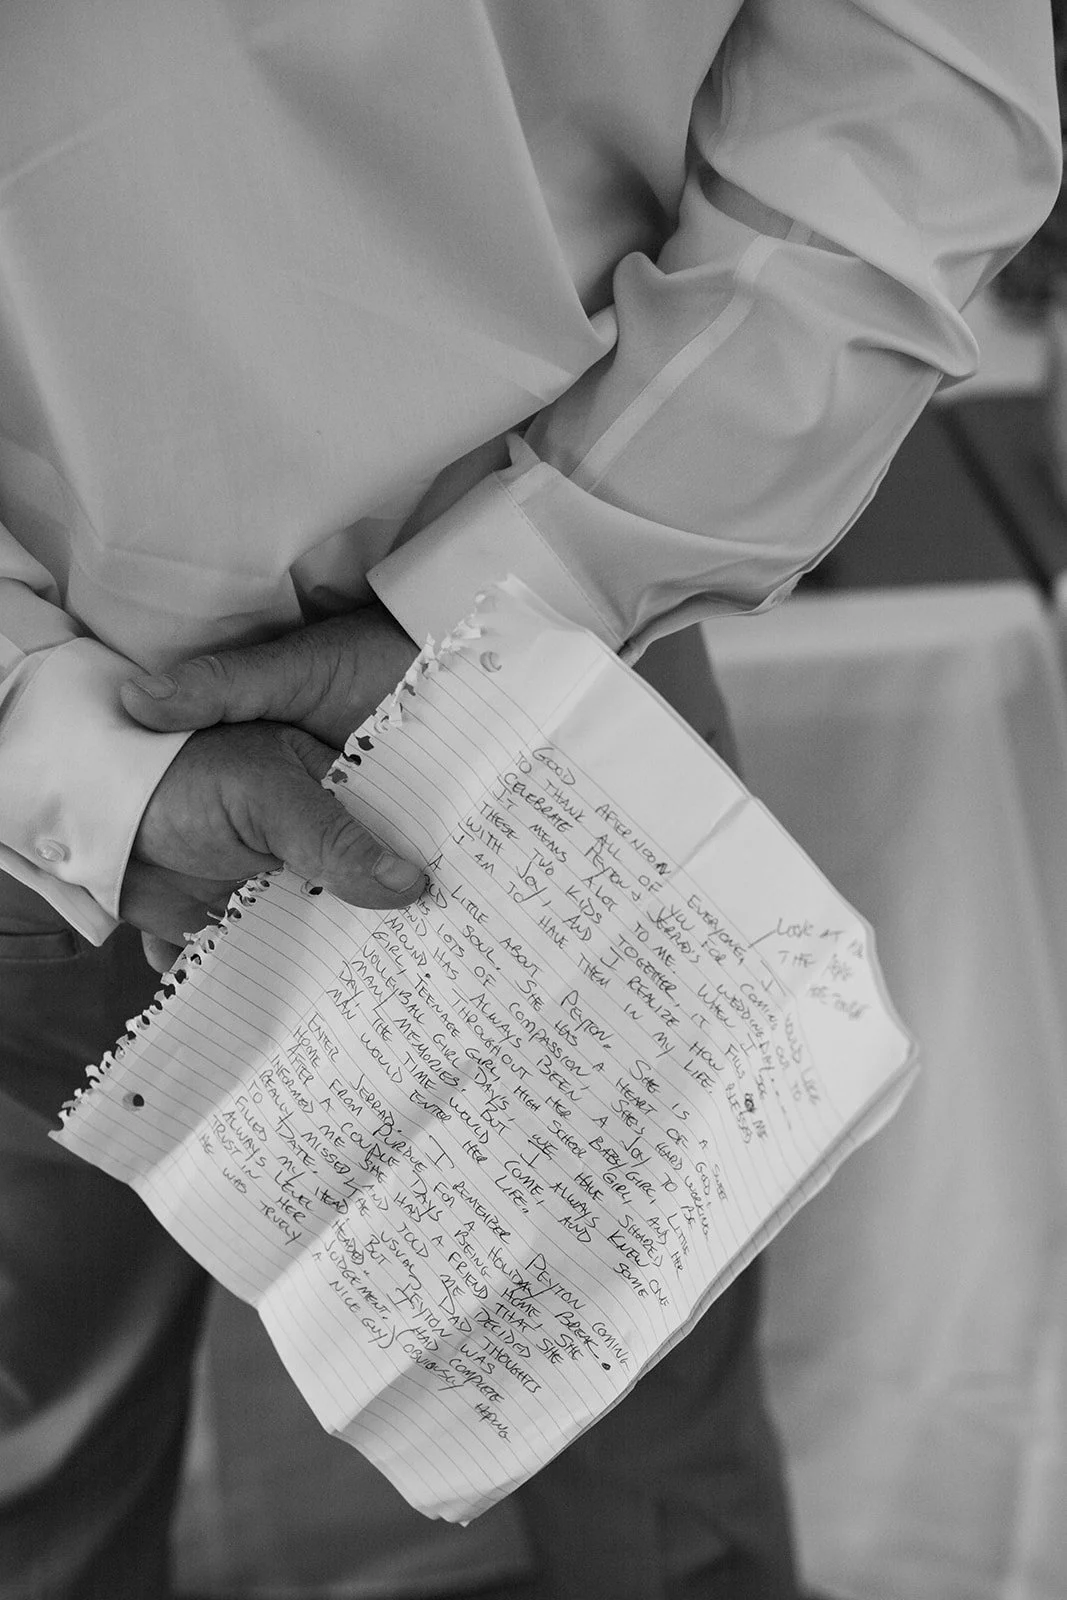 GOOD AFTERNOON EVERYONE, I WOULD LIKE
TO THANK ALL OF YOU FOR COMING OUT TO
CELEBRATE PEYTON & JERRAD'S WEDDING DAY.
IT MEANS A LOT TO ME. WHEN I SEE
THESE TWO KIDS TOGETHER, IT FILLS ME
WITH JOY, AND I REALIZE HOW BLESSED
I AM TO HAVE THEM IN MY LIFE.
LOOK AT
THE
A LITTLE ABOUT PEYTON. SHE IS A SWEET
OLD SOUL. SHE HAS A HEART OF GOLD,
HAS LOTS OF COMPASSION, SHE'S HARD WORKING
AND HAS ALWAYS BEEN A JOY TO BE
AROUND. THROUGHOUT HER BABY GIRL, LITTLE
GIRL, TEENAGE GIRL, HIGH SCHOOL GIRL, AND HER
VOLLEYBALL GIRL DAYS, WE HAVE SHARED
MANY MEMORIES. BUT I ALWAYS KNEW ONE
DAY, THE TIME WOULD COME, AND SOME
MAN WOULD ENTER HER LIFE.
ENTER JERRAD. I REMEMBER PEYTON COMING
HOME FROM PURDUE FOR A HOLIDAY BREAK.
AFTER A COUPLE DAYS BEING HOME, SHE
INFORMED ME SHE HAD A FRIEND THAT SHE
REALLY MISSED, AND TOLD ME DECIDED
TO DATE. THE USUAL DAD THOUGHTS
FILLED MY HEAD. BUT PEYTON WAS
ALWAYS LEVEL HEADED. I HAD COMPLETE
TRUST IN HER JUDGEMENT. (OBVIOUSLY HOPING
HE WAS TRUELY A NICE GUY)